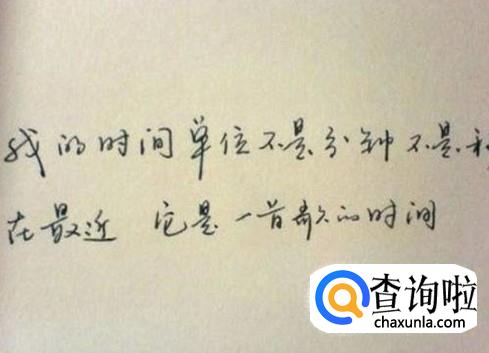 我的时间单位不是分钟不是
在最近 它是一首歌的时间
查询啦
chaxunla.com